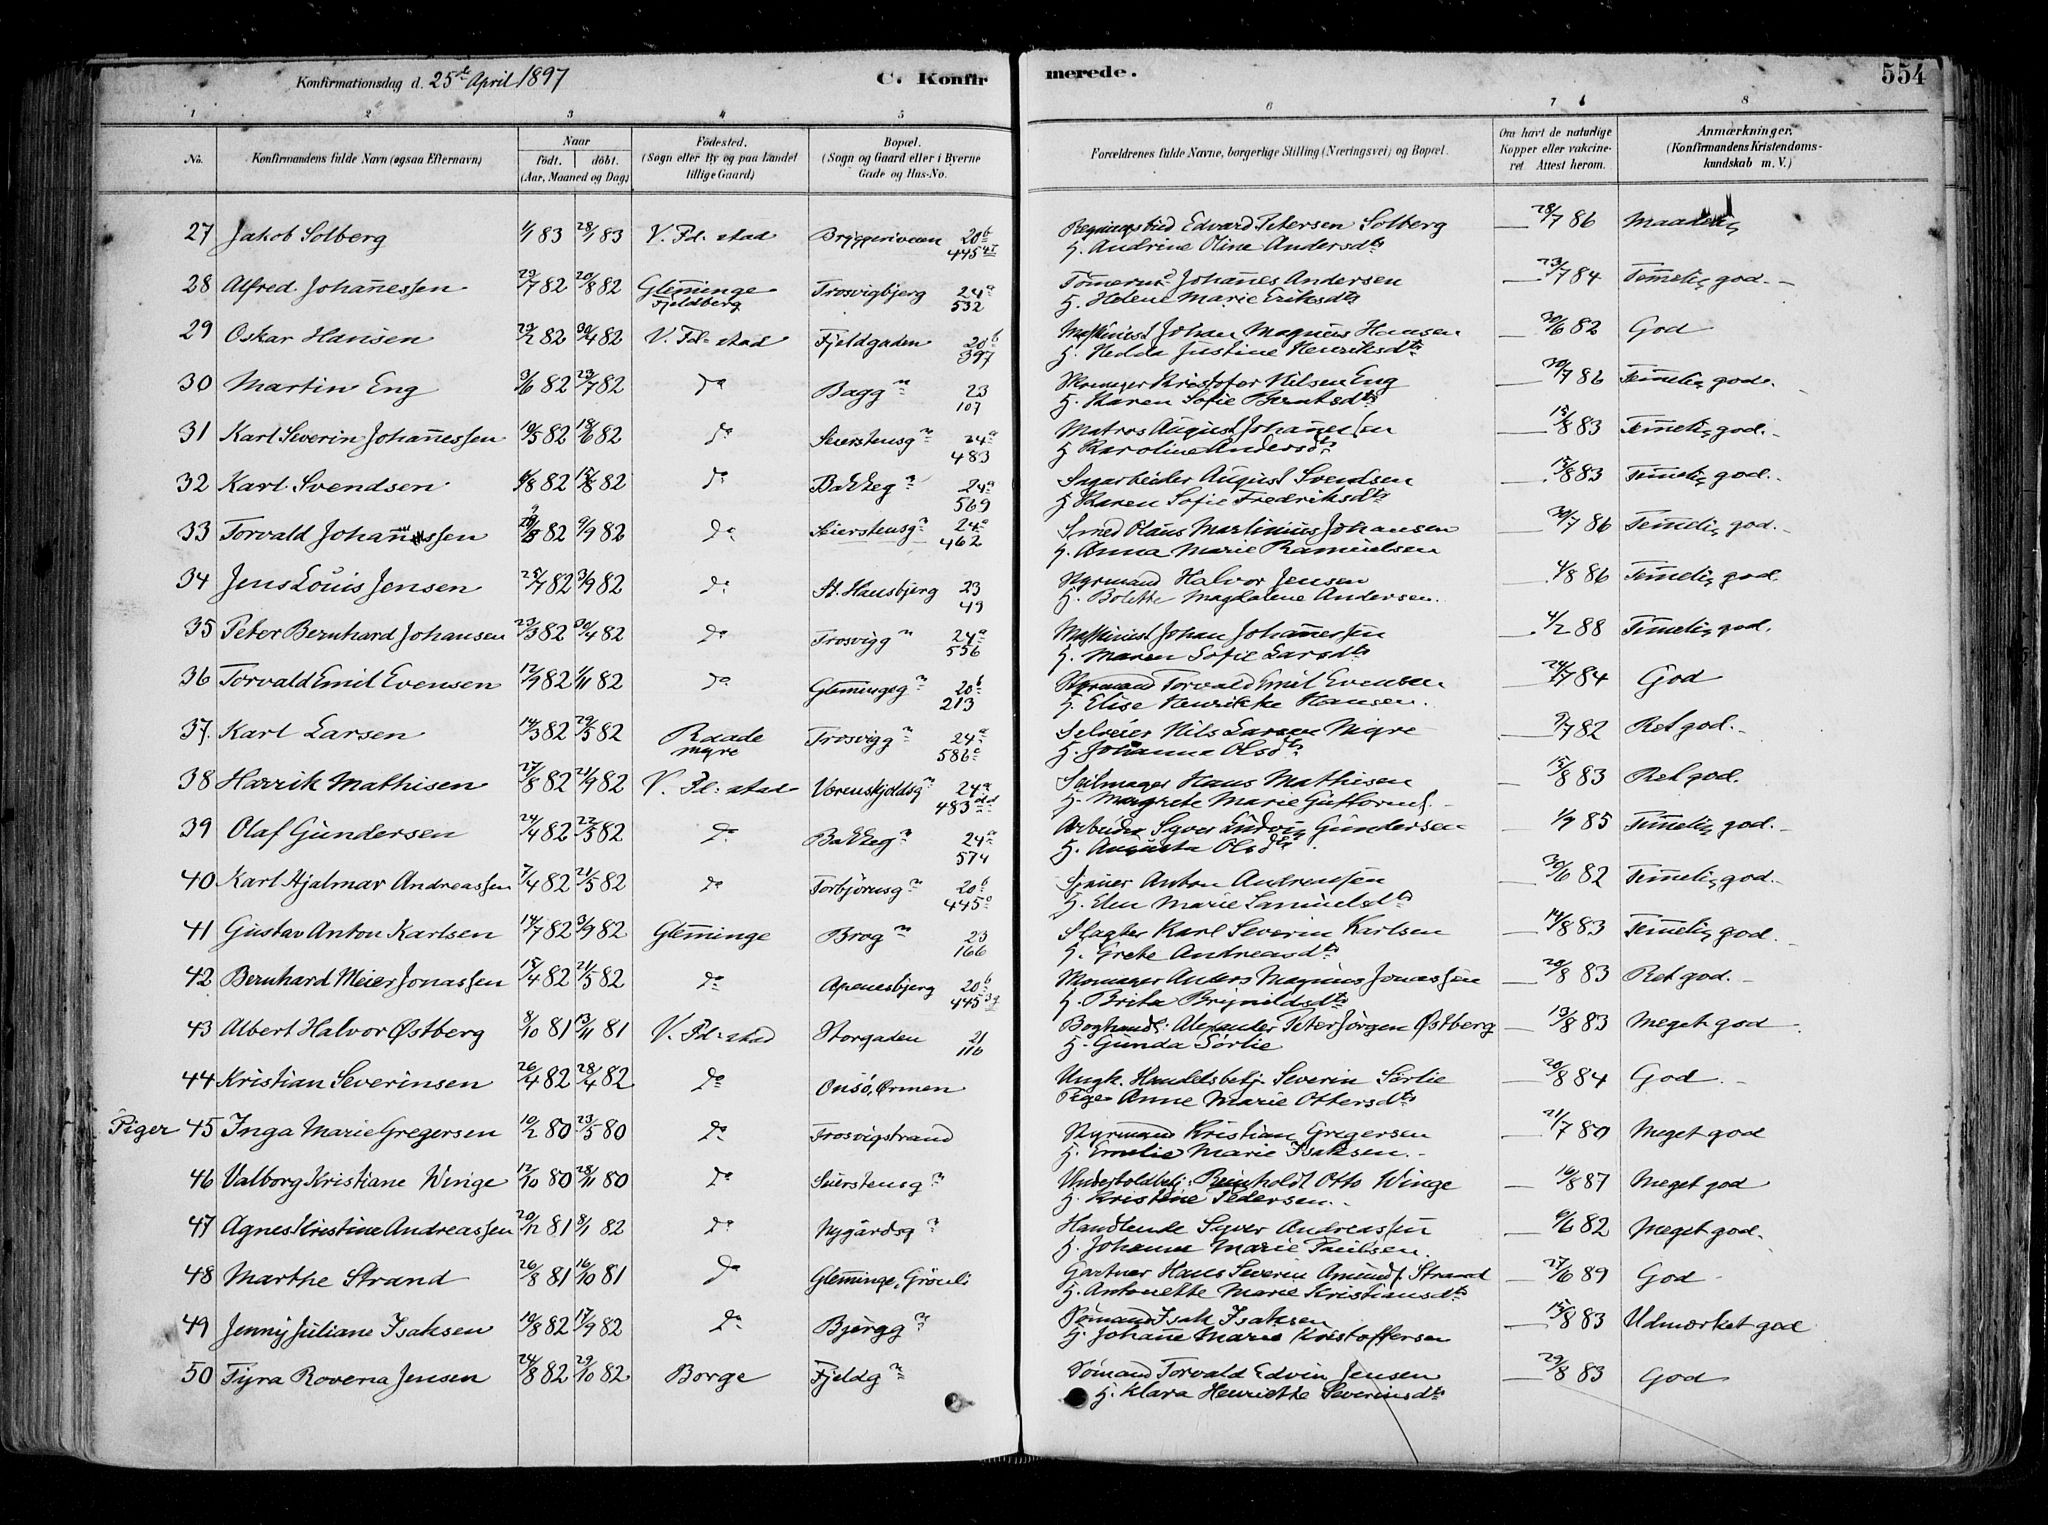 Konfirmationsdag d. 25de April 1897 C. Konfirmerede. 554
1 2 3 4 5 6 7 8
No. Konfirmandens fulde Navn (ogsaa Efternavn) Naar født. døbt. (Aar, Maaned og Dag) Fødested. (Sogn eller By og paa Landet tillige Gaard) Bopæl. (Sogn og Gaard eller i Byerne Gade og Hus-No. Forældrenes fulde Navne, borgerlige Stilling (Næringsvei) og Bopæl. Om havt de naturlige Kopper eller vakcineret Attest herom. Anmærkninger. (Konfirmandens Kristendomskundskab m. V.)
27 Jakob Solberg 1/1 83 28/1 83 V. Fd:stad Bryggeriveien 20b Edvard Petersen Solberg — 28/7 86
445 H. Andrine Oline Andersdt
28 Alfred Johannessen 29/7 82 20/8 82 Glemminge Trosvigbjerg 24a Tømerm Johannes Andersen — 23/7 84 Temmelig god.
Fjeldberg 532 H. Helene Marie Eriksdt
29 Oskar Hansen 29/2 82 30/4 82 V. Fd:stad Fjeldgaden 20b Maskinist Johan Magnus Hansen — 30/6 82 God
397 H. Hedda Justine Henriksdt
30 Martin Eng 3/6 82 23/7 82 do Bagg 23 Skomager Kristofer Nilsen Eng — 30/7 86 Temmelig god.
107 H. Karen Sofie Berntsdt
31 Karl Severin Johannessen 10/5 82 18/6 82 do Seierstensg 24a Matros August Johannessen — 15/8 83 Temmelig god.
483 H. Karoline Andersdt
32 Karl Svendsen 4/8 82 82 do Bakkeg 24a Sagarbeider August Svendsen 15/8 83 Temmelig god.
569 H. Karen Sofie Fredriksdt
33 Torvald Johannessen 82 9/9 82 do Seierstensg 24a Smed Olaus Martinius Johansen — 30/7 86 Temmelig god.
462 H. Anna Marie Ramuelsen
34 Jens Louis Jensen 25/7 82 3/9 82 do St. Hansbjerg 23 Styrmand Halvor Jensen 4/8 86 Temmelig god.
49 H. Bolette Magdalene Andersen.
35 Peter Bernhard Johansen 23/3 82 30/4 82 do Trosvigg 24a Maskinist Johan Johannessen 4/2 88 Temmelig god.
556 H. Maren Sofie Larsdt
36 Torvald Emil Evensen 12/9 82 1/11 82 do Glemmingeg 20b Styrmand Torvald Emil Evensen 24/7 84 God
213 H. Elise Henrikke Hansen.
37. Karl Larsen 14/3 82 29/5 82 Raade Trosvigg 24a Selveier Nils Larsen Myre 9/7 82 Ret god.
Myre 586c H. Johanna Olsdt
38 Harrik Mathisen 27/8 82 21/9 82 V. Fd:stad Vorenskjoldsg 24a Seilmager Hans Mathisen 15/8 83 Ret god.
483 H. Margrete Marie
39 Olaf Gundersen 24/4 82 22/5 82 do Bakkeg 24a Arbeider Syver Ludvig Gundersen 1/9 85 Temmelig god.
574 H. Augusta Olsdt.
40 Karl Hjalmar Andreassen 7/4 82 21/5 82 do Torbjørnsg 20b Anton Andreassen — 30/6 82 Temmelig god.
445a H. Elen Marie Samuelsdt
41 Gustav Anton Karlsen 14/7 82 3/9 82 Glemminge Brog 23 Slagter Karl Severin Karlsen — 14/8 83 Temmelig god.
166 H. Grete Andreasdt
42 Bernhard Meier Jonassen 18/4 82 21/5 82 do Apenesbjerg 20b Skomager Anders Magnus Jonassen — 20/8 83 Ret god.
445 H. Brita Brynildsdt
43 Albert Halvor Østberg 8/10 81 13/11 81 V. Fd:stad Storgaden 21 Boghandl: Alexander Peter Jørgen Østberg — 13/8 83 Meget god
116 H. Gunda Sørlie
44 Kristian Severinsen 26/4 82 28/4 82 do Onsø, Ørmen Ungk. Handelsbetj. Severin Sørlie — 20/8 84 God.
Pige Anne Marie Ottersdt
Piger 45 Inga Marie Gregersen 10/2 80 23/5 80 do Trosvigstrand Styrmand Kristian Gregersen — 21/7 80 Meget god
H. Emelie Marie Isaksen.
46 Valborg Kristiane Winge 12/10 80 28/11 80 do Seierstensg Reinholdt Otto Winge — 16/8 87 Meget god
H. Kristine Pedersen.
47 Agnes Kristine Andreassen 20/12 81 8/1 82 do Nygårdsg Handlende Syver Andreassen — 6/6 82 Meget god.
H. Johanne Marie Paulsen.
48 Marthe Strand 26/8 81 16/10 81 do Glemminge, Grønli Gartner Hans Severin Amunds. Strand — 27/6 89 God
H. Antonette Marie Kristiansdt
49 Jenny Juliane Isaksen 19/8 82 17/9 82 do Bjergg Sømand Isak Isaksen — 15/8 83 Udmærket god
H. Johanne Marie Kristoffersen
50 Tyra Rovena Jensen 24/8 82 29/10 82 Borge Fjeldg Sømand Torvald Edvin Jensen — 29/8 83 God
H. Klara Henriette Severinsdt